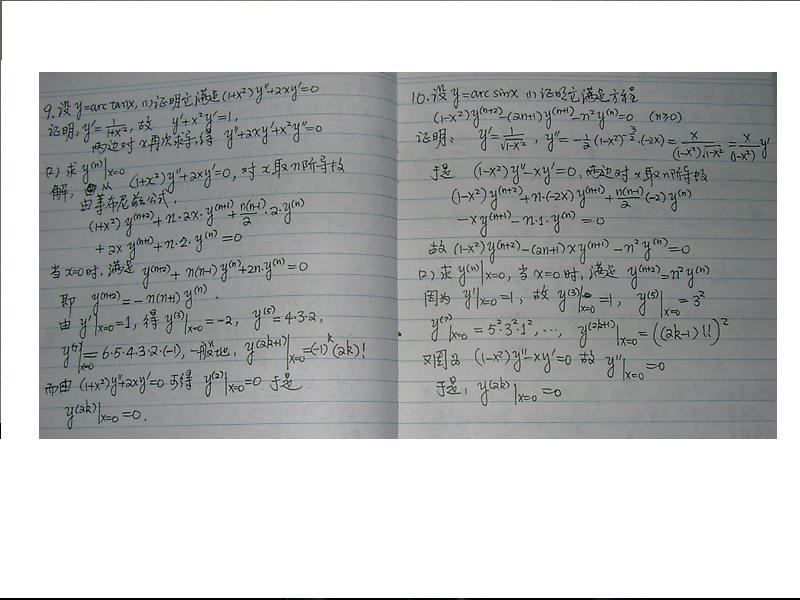 9. 设 y=arctanx, (1) 证明它满足(1+x²)y''+2xy'=0
证明: y'=1/(1+x²), 故 y'+x²y'=1,
两边对x再次求导,得 y''+2xy'+x²y''=0
(2) 求 y⁽ⁿ⁾|x=0
解: 从 (1+x²)y''+2xy'=0, 对x取n阶导数
由莱布尼兹公式,
(1+x²)y⁽ⁿ⁺²⁾+n·2x·y⁽ⁿ⁺¹⁾+n(n-1)/2·2·y⁽ⁿ⁾
+2xy⁽ⁿ⁺¹⁾+n·2·y⁽ⁿ⁾=0
当x=0时,满足 y⁽ⁿ⁺²⁾+n(n-1)y⁽ⁿ⁾+2n·y⁽ⁿ⁾=0
即 y⁽ⁿ⁺²⁾=-n(n+1)y⁽ⁿ⁾.
由 y'|x=0=1, 得 y⁽³⁾|x=0=-2, y⁽⁵⁾=4·3·2,
y⁽⁷⁾|x=0=6·5·4·3·2·(-1), 一般地, y⁽²ᵏ⁺¹⁾|x=0=(-1)ᵏ(2k)!
而由 (1+x²)y''+2xy'=0 可得 y⁽²⁾|x=0=0 于是
y⁽²ᵏ⁾|x=0=0.
10. 设 y=arcsinx (1) 证明它满足方程
(1-x²)y⁽ⁿ⁺²⁾-(2n+1)y⁽ⁿ⁺¹⁾-n²y⁽ⁿ⁾=0 (n≥0)
证明: y'=1/√(1-x²), y''=-1/2(1-x²)^(-3/2)·(-2x)=x/((1-x²)√(1-x²))=x/(1-x²)y'
于是 (1-x²)y''-xy'=0, 两边对x取n阶导数
(1-x²)y⁽ⁿ⁺²⁾+n·(-2x)y⁽ⁿ⁺¹⁾+n(n-1)/2·(-2)y⁽ⁿ⁾
-xy⁽ⁿ⁺¹⁾-n·1·y⁽ⁿ⁾=0
故 (1-x²)y⁽ⁿ⁺²⁾-(2n+1)xy⁽ⁿ⁺¹⁾-n²y⁽ⁿ⁾=0
(2) 求 y⁽ⁿ⁾|x=0, 当x=0时, 满足 y⁽ⁿ⁺²⁾=n²y⁽ⁿ⁾
因为 y'|x=0=1, 故 y⁽³⁾|x=0=1, y⁽⁵⁾|x=0=3²
y⁽⁷⁾|x=0=5²·3²·1², ⋯, y⁽²ᵏ⁺¹⁾|x=0=((2k-1)!!)²
又因为 (1-x²)y''-xy'=0 故 y''|x=0=0
于是, y⁽²ᵏ⁾|x=0=0